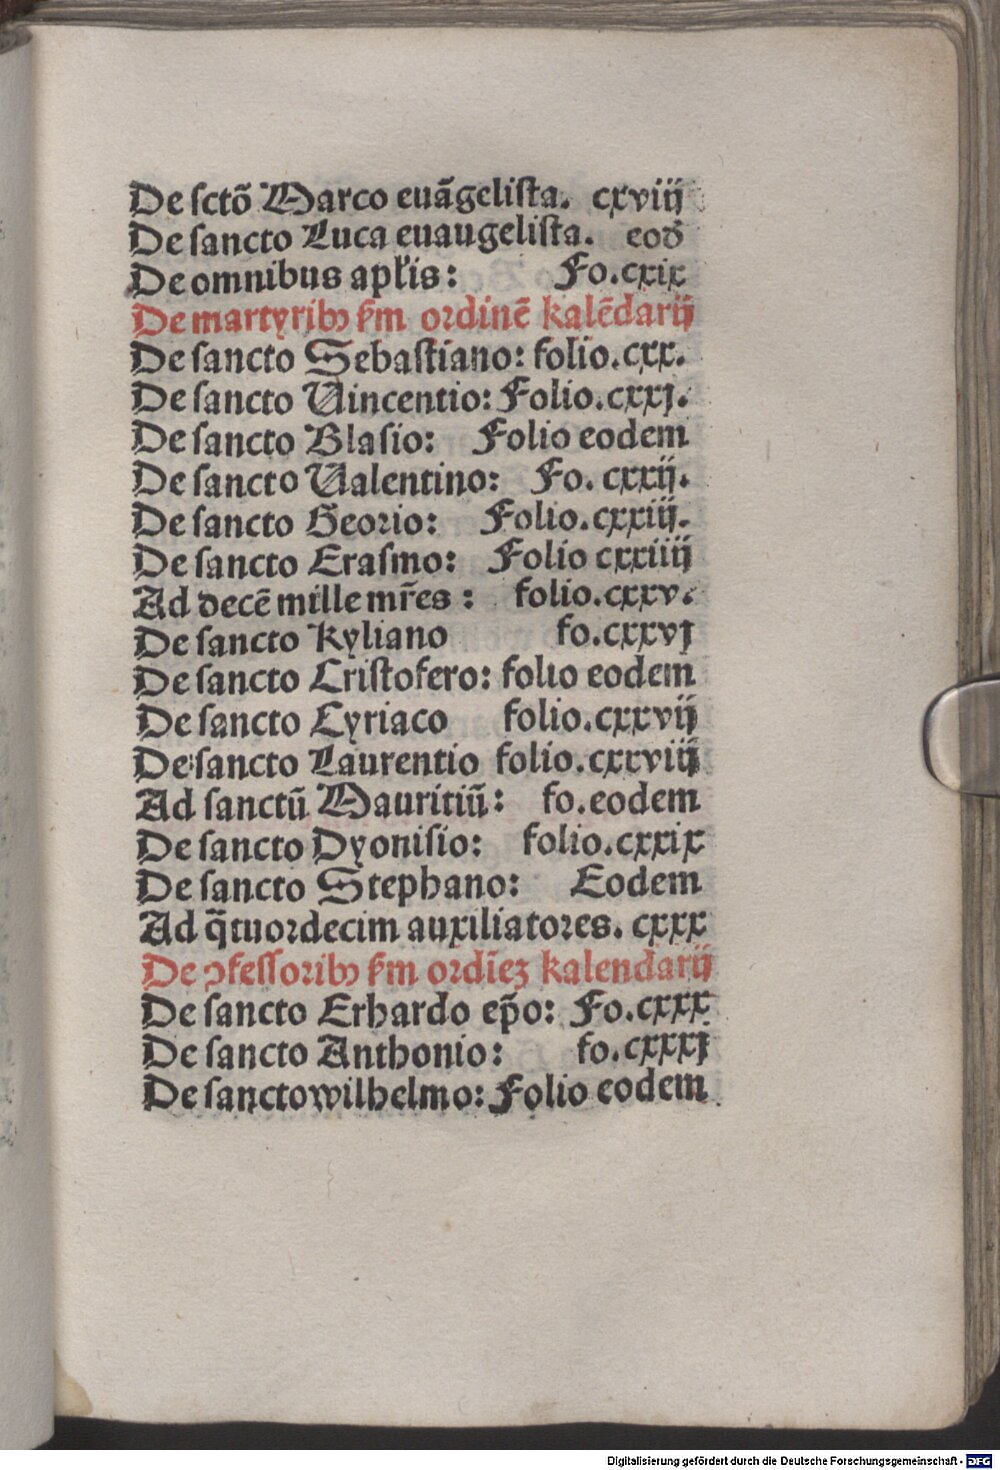 De sctō Marco euāgelista. cxviij
De sancto Luca euaugelista. eod
De omnibus apl'is: Fo.cxix
De martyribꝰ ẜm ordinē kalēdarij
De sancto Sebastiano: folio.cxx.
De sancto Uincentio: Folio.cxxj.
De sancto Blasio: Folio eodem
De sancto Ualentino: Fo. cxxij.
De sancto Georio: Folio.cxxiij.
De sancto Erasmo: Folio cxxiiij
Ad decē mille mr̄es : folio.cxxv.
De sancto Kyliano fo.cxxvj
De sancto Cristofero: folio eodem
De sancto Cyriaco folio.cxxvij
De sancto Laurentio folio.cxxviij
Ad sanctū Mauritiū: fo.eodem
De sancto Dyonisio: folio.cxxix
De sancto Stephano: Eodem
Ad q̄tuordecim auxiliatores. cxxx
De ꝯfessoribꝰ ẜm ordīeꝫ kalendarij
De sancto Erhardo ep̄o: Fo.cxxx
De sancto Anthonio: fo.cxxxj
De sancto wilhelmo: Folio eodem
Digitalisierung gefördert durch die Deutsche Forschungsgemeinschaft - DFG